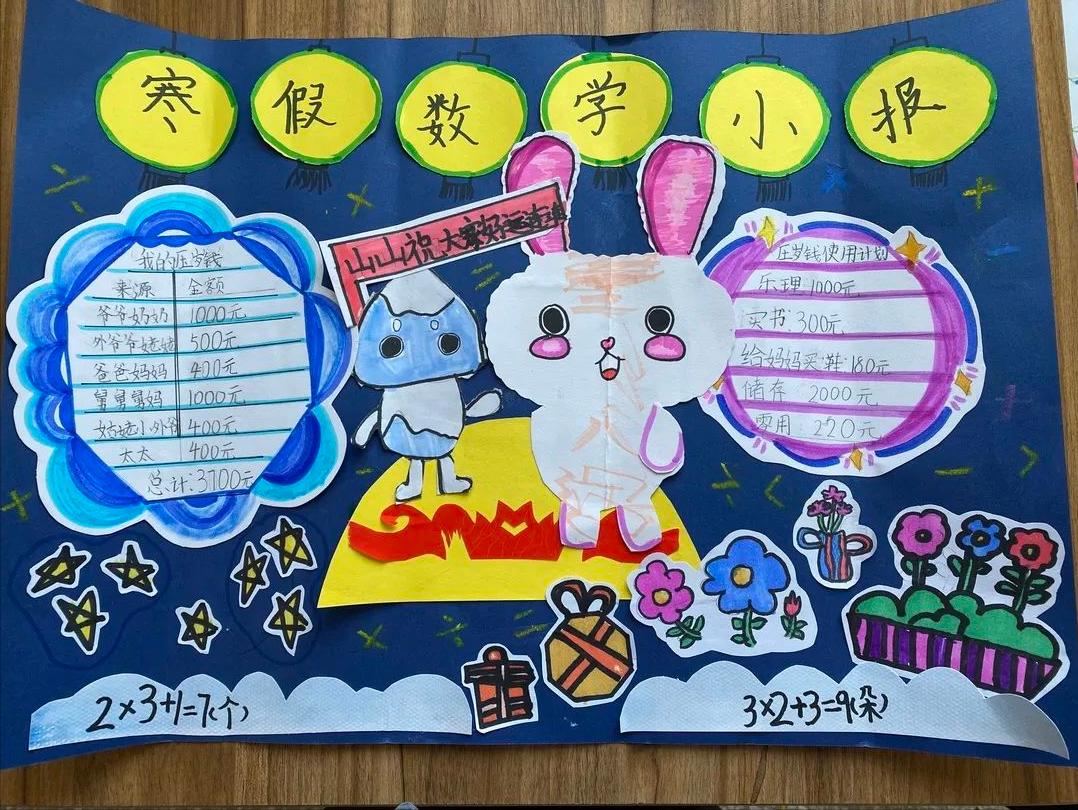 寒假数学小报
山山祝大家好运连连
我的压岁钱
来源 金额
爷爷奶奶 1000元
外爷爷姥姥 500元
爸爸妈妈 400元
舅舅舅妈 1000元
姑姑小外爷 400元
太太 400元
总计:3700元
压岁钱使用计划
乐理 1000元
买书:300元
给妈妈买鞋:180元
储存 2000元
零用:220元
2×3+1=7(个)
3×2+3=9(朵)